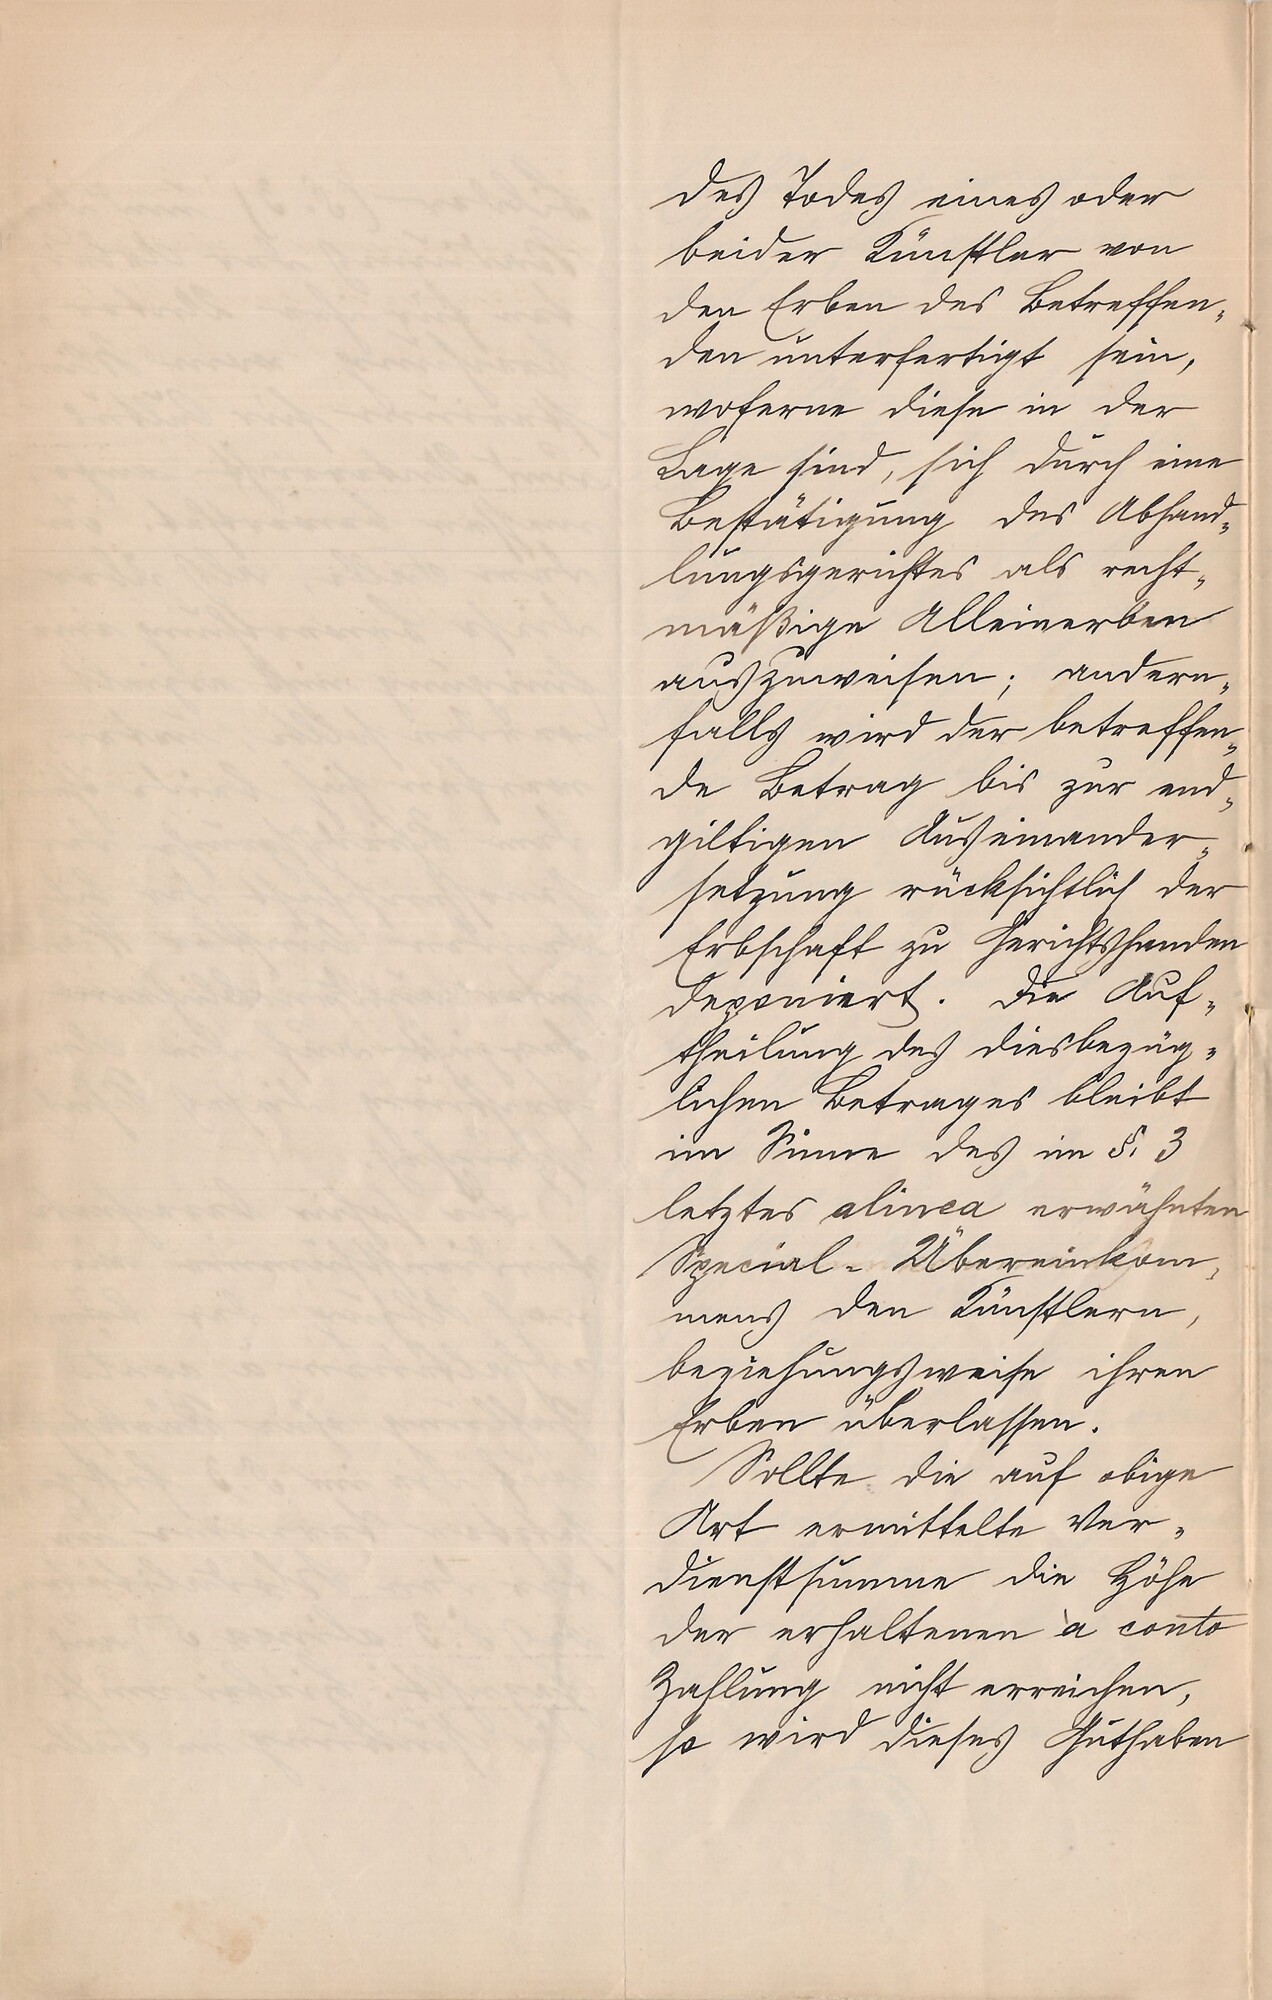 des Todes eines oder
beider Künstler von
den Erben des Betreffen-
den unterfertigt sein,
woferne diese in der
Lage sind, sich durch eine
Bestätigung des Abhand-
lungsgerichtes als recht-
mäßige Alleinerben
auszuweisen; andern-
falls wird der betreffen-
de Betrag bis zur end-
giltigen Auseinander-
setzung rücksichtlich der
Erbschaft zu Gerichtshanden
deponiert. Die Auf-
theilung des diesbezüg-
lichen Betrages bleibt
im Sinne des im §. 3
letztes alinea erwähnten
Special-Übereinkom-
mens den Künstlern,
beziehungsweise ihren
Erben überlassen.
Sollte die auf obige
Art ermittelte Ver-
dienstsumme die Höhe
der erhaltenen à conto
Zahlung nicht erreichen,
so wird dieses Guthaben